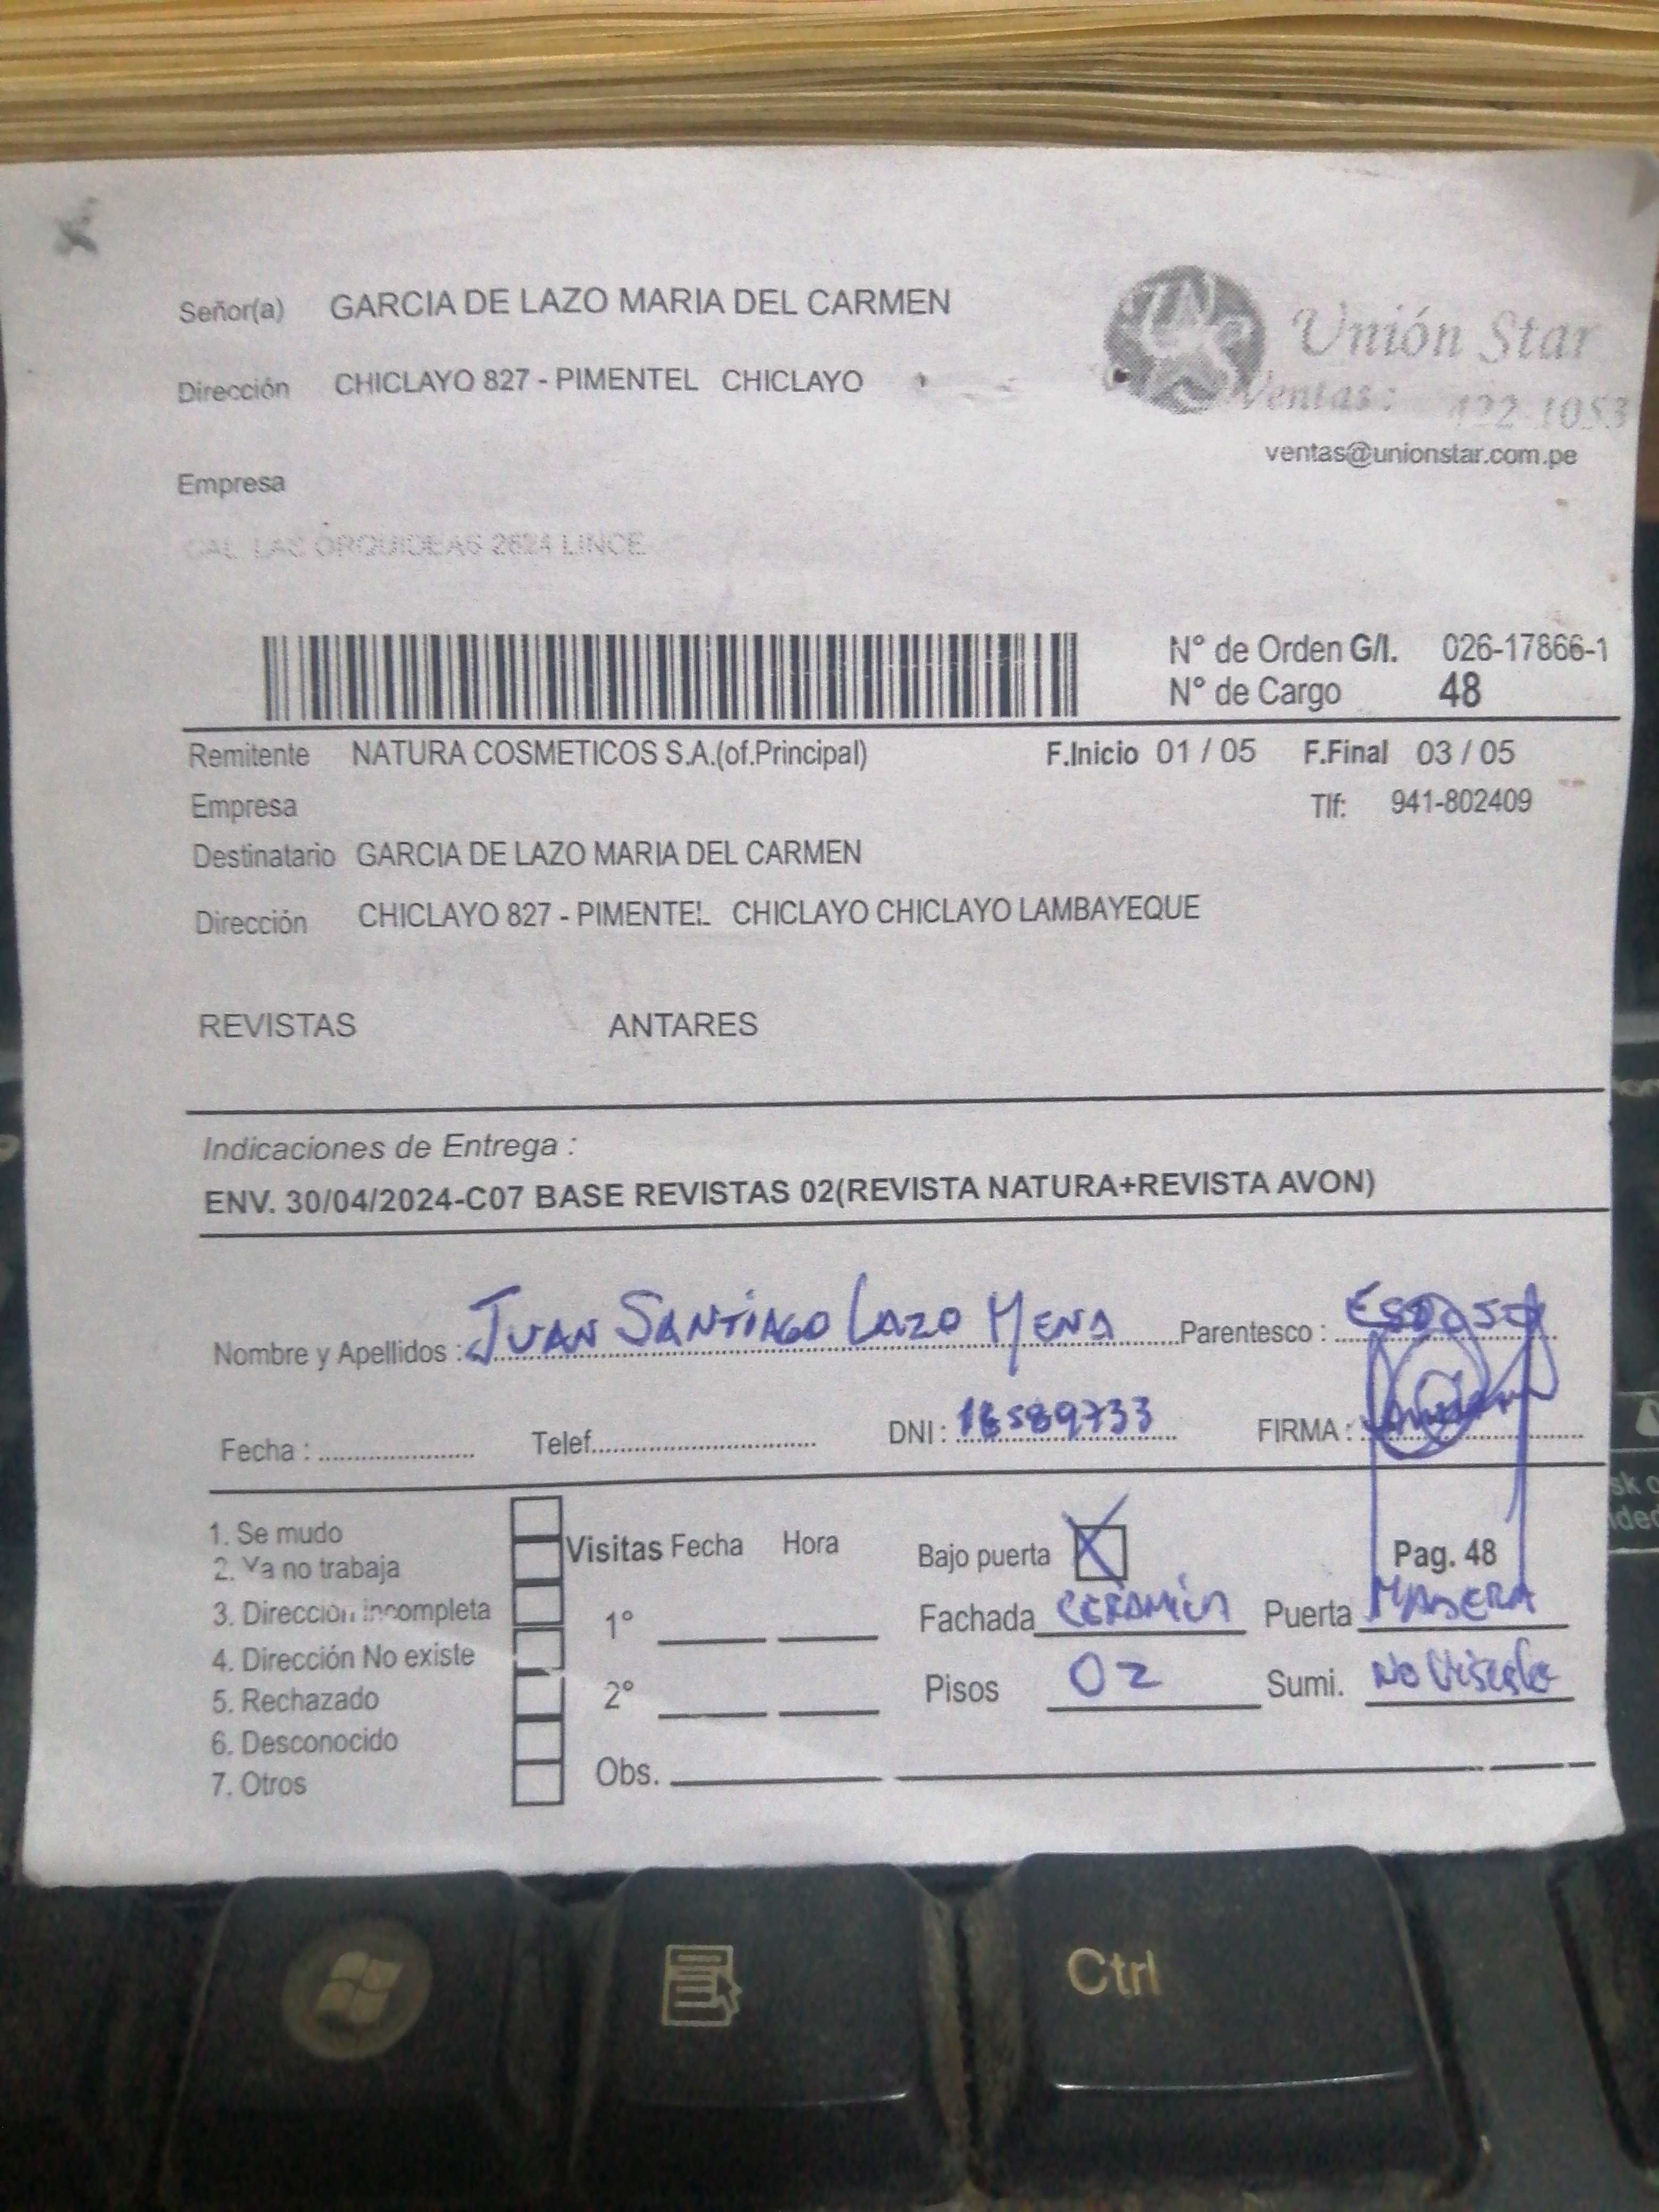 Señor(a) GARCIA DE LAZO MARIA DEL CARMEN
Unión Star
Dirección CHICLAYO 827 - PIMENTEL CHICLAYO
Ventas: 422-1053
ventas@unionstar.com.pe
Empresa
CAL LAS ORQUIDEAS 2624 LINCE
N° de Orden G/I. 026-17866-1
N° de Cargo 48
Remitente NATURA COSMETICOS S.A.(of.Principal) F.Inicio 01 / 05 F.Final 03 / 05
Empresa Tlf: 941-802409
Destinatario GARCIA DE LAZO MARIA DEL CARMEN
Dirección CHICLAYO 827 - PIMENTEL CHICLAYO CHICLAYO LAMBAYEQUE
REVISTAS ANTARES
Indicaciones de Entrega :
ENV. 30/04/2024-C07 BASE REVISTAS 02(REVISTA NATURA+REVISTA AVON)
Nombre y Apellidos : JUAN SANTIAGO LAZO MENA Parentesco : ESPOSO
Fecha : Telef. DNI : FIRMA :
1. Se mudo
2. Ya no trabaja
3. Dirección incompleta
4. Dirección No existe
5. Rechazado
6. Desconocido
7. Otros
Visitas Fecha Hora
1°
2°
Obs.
Bajo puerta X Pag. 48
Fachada CERAMICA Puerta MADERA
Pisos 02 Sumi. No Visible
Ctrl